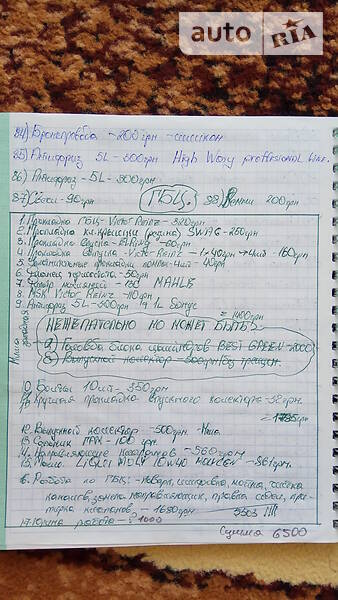 auto RIA
84) Бронепровода - 200грн - силикон
85) Антифриз 5L - 300грн High Way proffessional
86) Антифриз - 5L - 300грн
87) Свечи - 90грн ГБЦ. 88) 200 грн
1. Прокладка ГБЦ - Victor Reinz - 320грн
2. Прокладка кл. крышки (родина) SWAG - 260грн
3. Прокладка впуска - Elring - 60грн
4. Прокладка выпуска - Victor Reinz - 1×40грн → 4шт - 160грн
5. прокладки помпы - 4шт - 40грн
6. термостата - 50грн
7. Фильтр масляный - 130 MAHLE
8. МSK Victor Reinz - 110грн
9. Антифриз 5L - 300грн и 1L Бонус
= 1400грн
НЕЖЕЛАТЕЛЬНО НО МОЖЕТ БЫТЬ:
а) Головка блока цилиндров BEST GREEN - 2000
б) Выпускной колектор - 800грн/без трещин.
10. Болты 10шт - 350грн
11. Круглая прокладка впускного колектора - 32грн
= 1785грн
12. Выпускной колектор - 500грн - Миша
13. Сапоник - 100 грн.
14. Направляющие клапанов - 560грн
15. Масло. LIQUI MOLY 10W40 - 561грн.
16. Работа по ГБЦ: - шлифовка, мойка, чистка
клапанов, замена направляющих, правка седел, при-
тирка клапанов - 1650грн 5303 !!!
17. работа - ? 1000
Сумма 6500